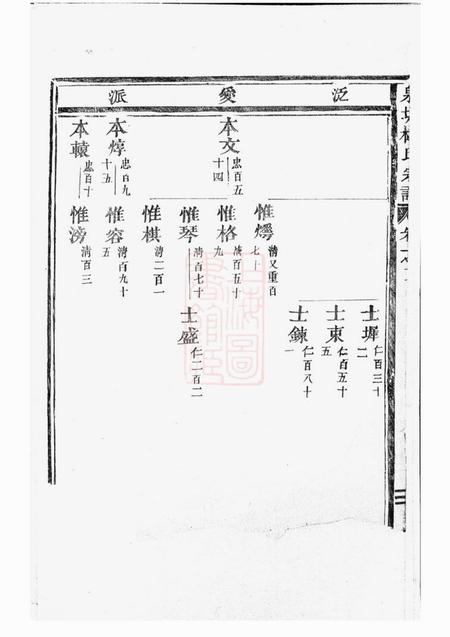 泛愛派
士墀 仁百三十二
士東 仁百五十五
士鍊 仁百八十一
惟 清又重百七十
本文 忠百五十四
惟格 清百五十九
惟琴 清百七十
士盛 仁二百二
惟棋 清二百一
本焞 忠百九十五
惟容 清百九十五
本轅 忠百十
惟滂 清百三